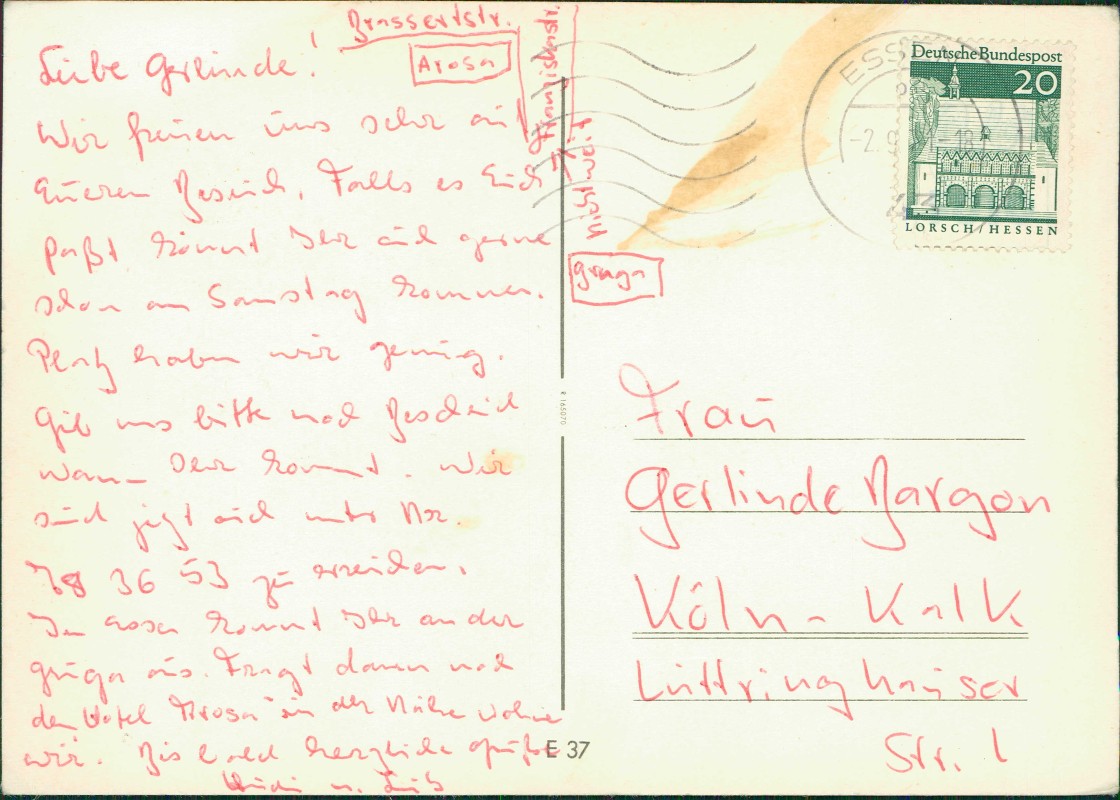 Brassertstr.
Arosa
Franziskastr.
nicht weit
gruga
Liebe Gerlinde!
Wir freuen uns sehr auf
Eueren Besuch. Falls es Euch
paßt, könnt Ihr auch gerne
schon am Samstag kommen.
Platz haben wir genug.
Gib uns bitte noch Bescheid
wann Ihr kommt. Wir
sind jetzt auch unter Nr.
78 36 53 zu erreichen.
In Essen kommt Ihr an der
gruga aus. Fragt dann nach
dem Hotel "Arosa" in der Nähe wohnen
wir. Bis bald herzliche Grüße
u.
Deutsche Bundespost
20
LORSCH/HESSEN
ESSEN
-2.
-18
43
R 165070
Frau
Gerlinde Margon
Köln-Kalk
Lüttringhauser
Str. 1
E 37